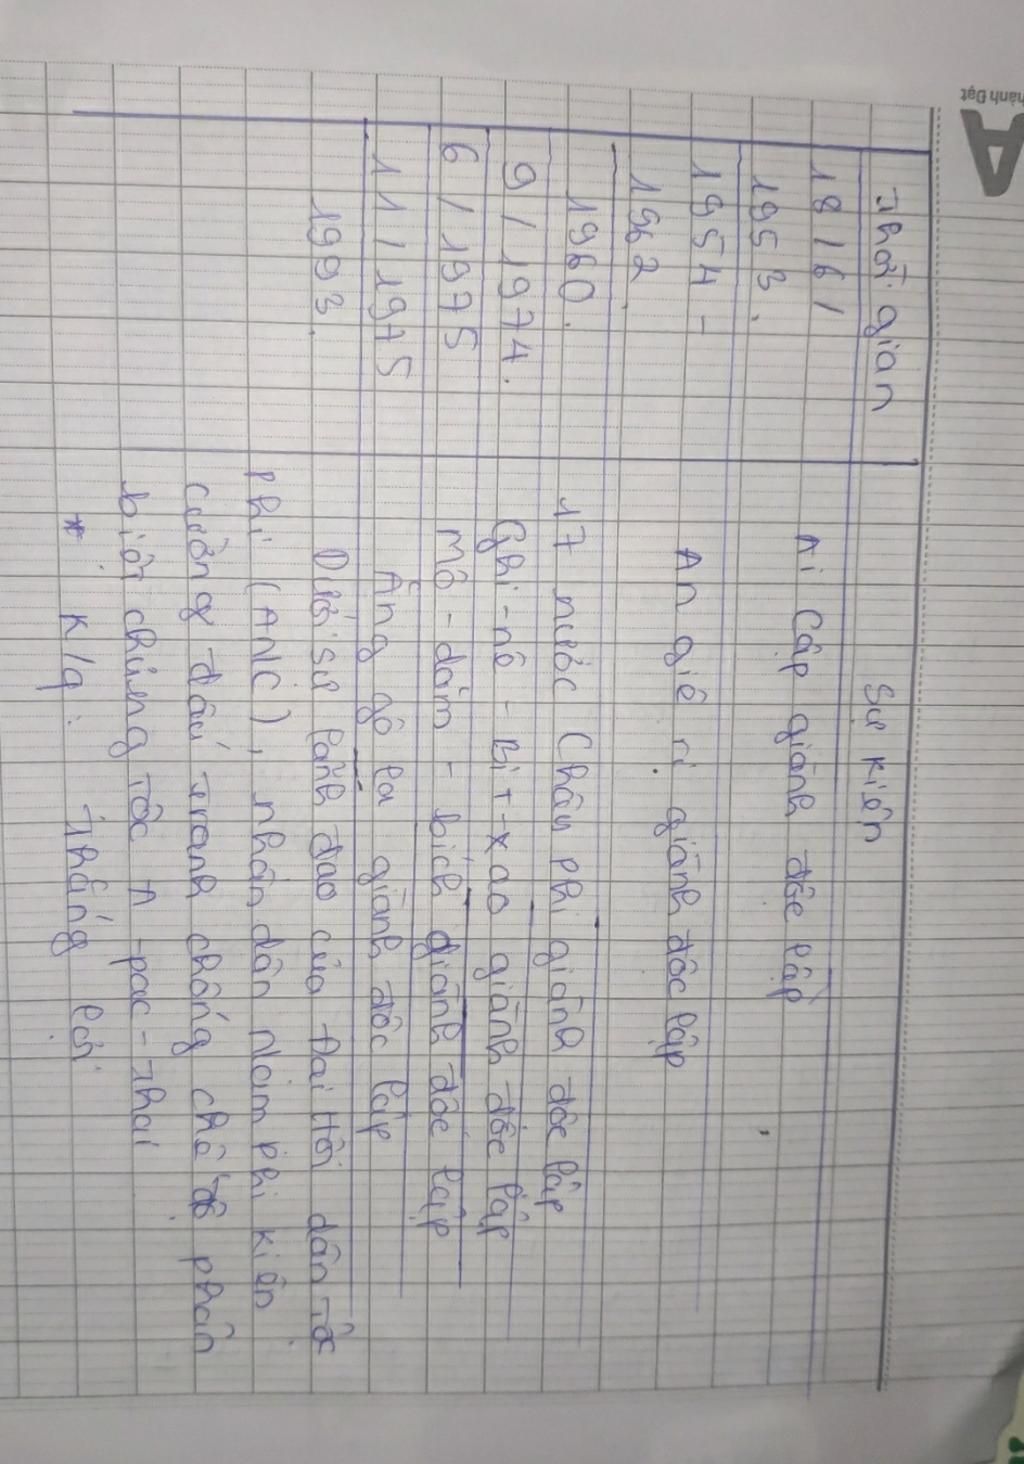 hành Đạt
Thời gian
Sự kiện
18/6/
1953.
Ai Cập giành độc lập
1954-
1962
An giê ri giành độc lập
1960.
17 nước Châu phi giành độc lập
9/1974.
Ghi-nê-Bit-xao giành độc lập
6/1975
Mô-dăm-bích giành độc lập
11/1975
Ăng gô la giành độc lập
1993.
Dưới sự lãnh đạo của Đại Hội dân tộc
phi (ANC), nhân dân Nam phi kiên
cường đấu tranh chống chế độ phân
biệt chủng tộc A-pac-thai
* K/q: Thắng lợi